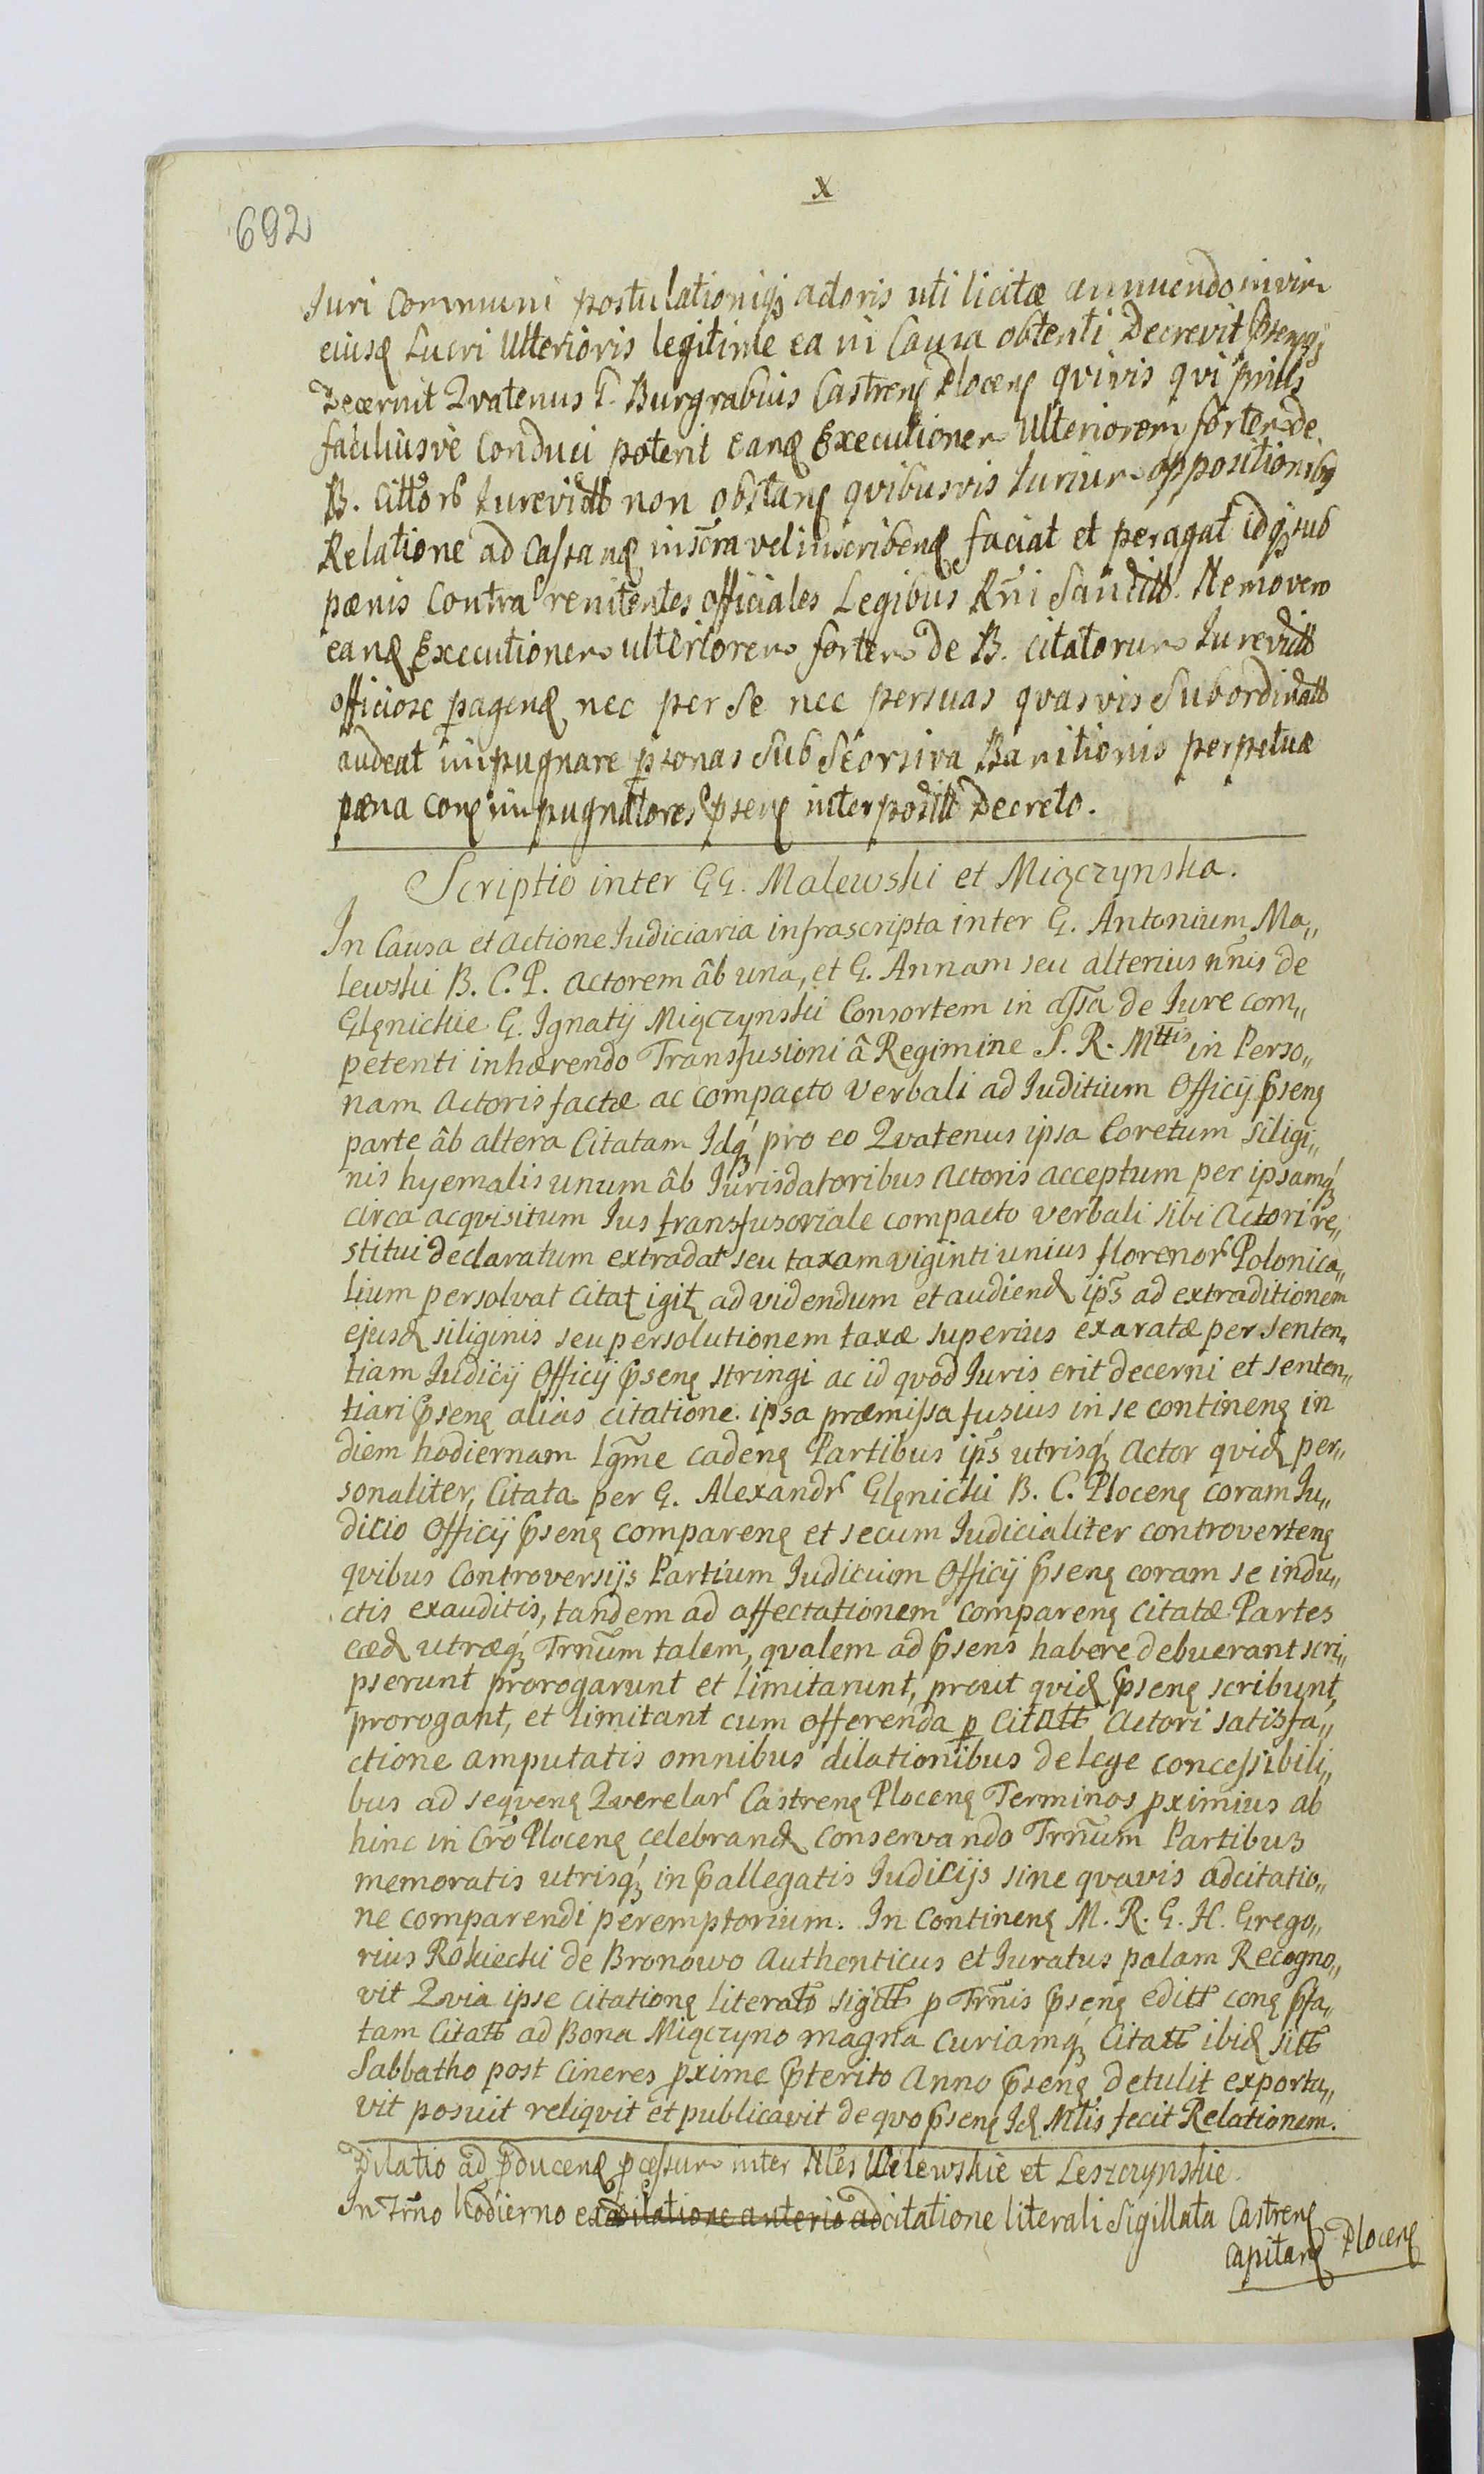 X
692
Juri Communi postulationiq actoris uti licitæ annuendo in vim
eiusd Lucri Ulterioris legitime ea in Causa obtenti Decrevit psenq
Decernit Qvatenus G. Burgrabius Castren Plocen qvivis qvi prius
faciliusve Conduci poterit eand Executionem Ulteriorem fortem de
B. Cittor Jurevictt non obstan qvibusvis Jurium oppositionibq
Relatione ad Castrand inscra vel inscribend faciat et peragat idq sub
pænis Contra renitentes officiales Legibus Rni Sancitt. Nemo vero
eand Executionem ulteriorem fortem de B. citatorum Jurevictt
officiose pagend nec per se nec per suas qvasvis Subordinatt
audeat impugnare psonas Sub Seorsiva Banitionis perpetuæ
pæna con impugnatores psen interpositt Decreto.
Scriptio inter GG. Malewski et Miączynska.
In Causa et actione Judiciaria infrascripta inter G. Antonium Ma„
lewski B. C. P. actorem âb una, et G. Annam seu alterius nnis de
Glęnickie G. Ignatij Miączynski Consortem in assa de Jure com„
petenti inhærendo Transfusioni â Regimine S. R. Mttis in Perso„
nam Actoris factæ ac compacto verbali ad Juditium Officij psen
parte âb altera Citatam Idq pro eo Qvatenus ipsa Coretum siligi„
nis hyemalis unum âb Jurisdatoribus Actoris acceptum per ipsamq
circa acqvisitum Jus transfusoriale compacto verbali sibi Actori re„
stitui declaratum extradat seu taxam viginti unius florenor Polonica„
lium persolvat citat igit ad videndum et audiend ips ad extraditionem
ejusd siliginis seu persolutionem taxæ superius exaratæ per senten„
tiam Judicij Officij psen stringi ac id qvod Juris erit decerni et senten„
tiari psen alias citatione ipsa præmissa fusius in se continen in
diem hodiernam lgme caden Partibus ips utrisq Actor qvid per„
sonaliter, Citata per G. Alexandr Glęnicki B. C. Plocen coram Ju„
dicio Officij psen comparen et secum Judicialiter controverten
qvibus Controversijs Partium Judicium Officij psen coram se indu„
ctis exauditis, tandem ad affectationem comparen citatæ Partes
eæd utræq Trnum talem, qvalem ad psens habere debuerant scri„
pserunt prorogarunt et limitarunt, prout qvid psen scribunt
prorogant, et limitant cum offerenda p Citatt Actori satisfa„
ctione amputatis omnibus dilationibus de lege concessibili„
bus ad seqven Qverelar Castren Plocen Terminos pximius ab
hinc in Cro Plocen celebrand Conservando Trnum Partibus
memoratis utrisq in pallegatis Judicijs sine qvavis adcitatio„
ne comparendi peremptorium. In Continen M. R. G. H. Grego„
rius Rokiecki de Bronowo Authenticus et Juratus palam Recogno„
vit Qvia ipse citation literatt sigitt p Trnis psen editt con psa„
tam Citatt ad Bona Miączyno magna Curiamq Citatt ibid sitt
Sabbatho post Cineres pxime pterito Anno psen detulit exporta„
vit posuit reliqvit et publicavit de qvo psen Id Mtis fecit Relationem.
Dilatio ad pducend pcessum inter Nles Wilewskie et Leszczynskie.
In Trno hodierno ex dilatione anterio adcitatione literali Sigillata Castren
Capitan Plocen